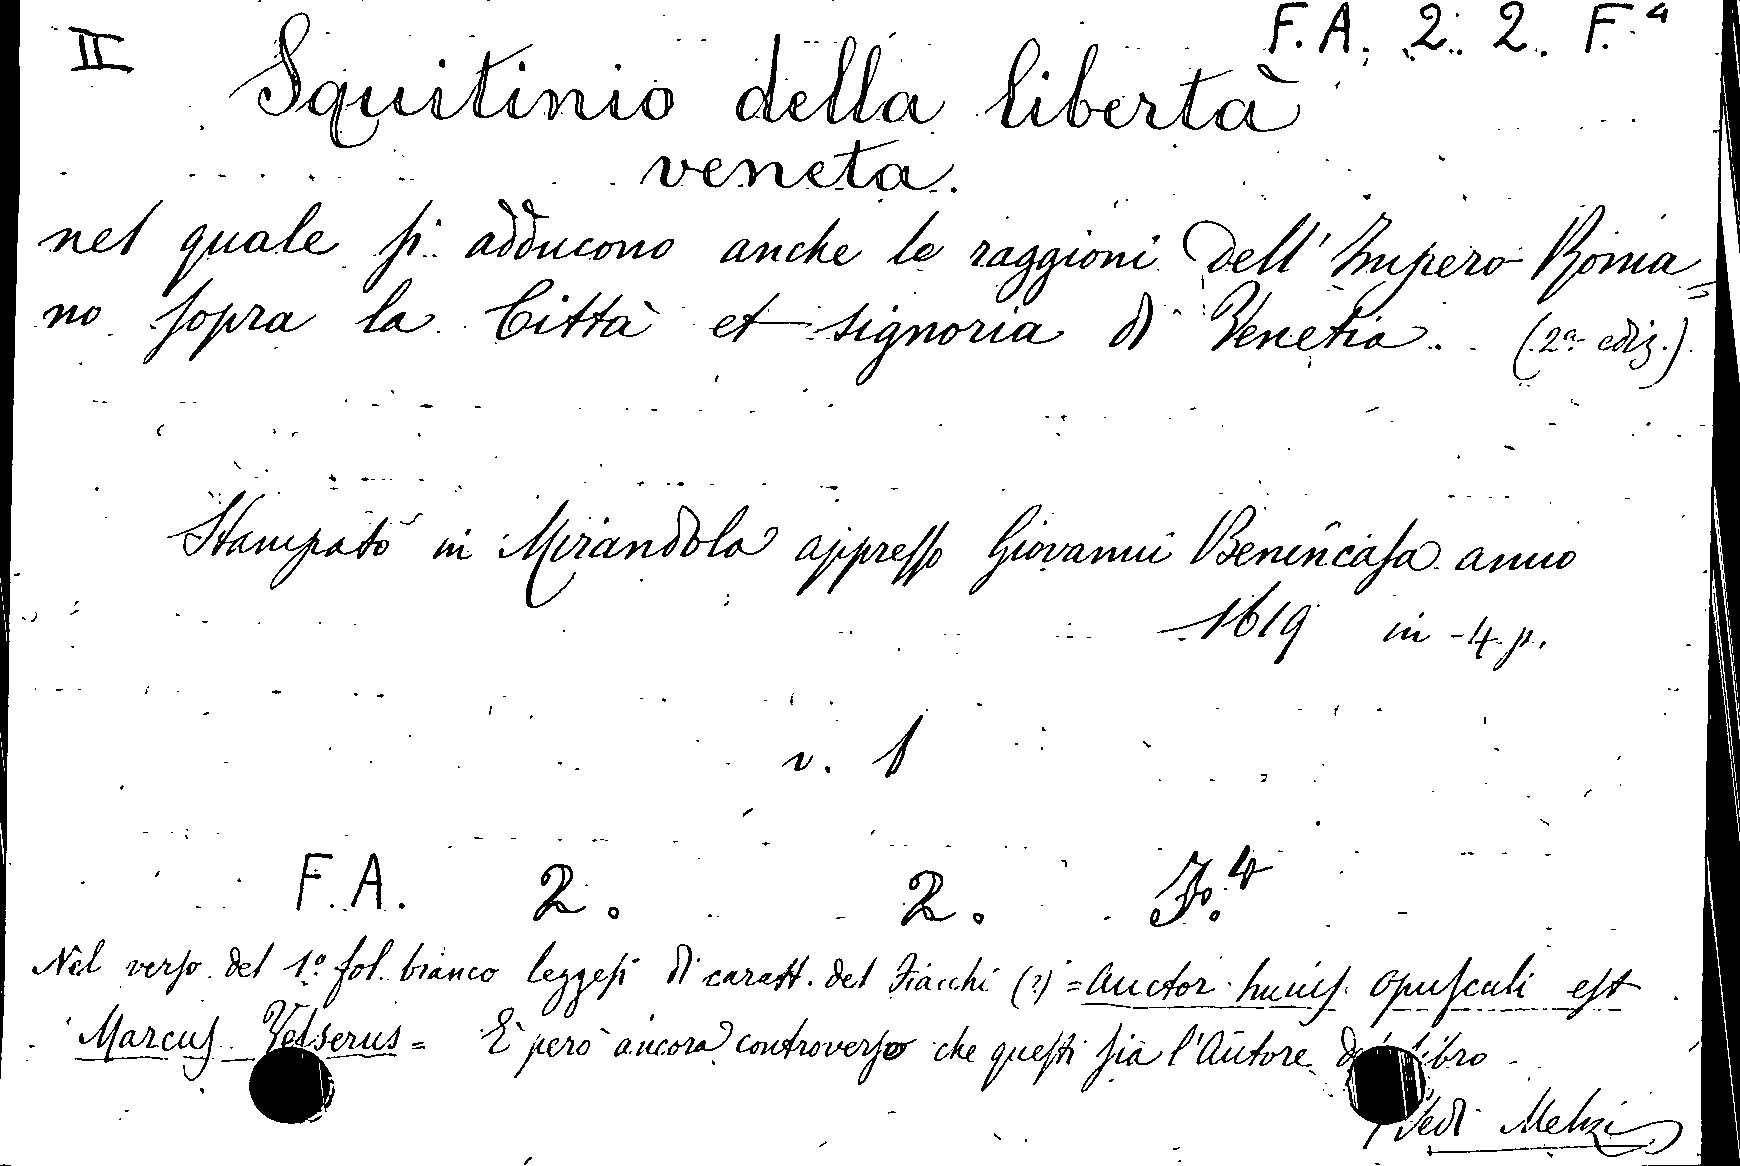 II
F. A. 2. 2. F. 4
Squitinio della libertà
veneta.
nel quale si adducono anche le raggioni dell'Impero Roma=
no sopra la Città et signoria di Venetia. (2a ediz.)
Stampato in Mirandola appresso Giovanni Benincasa anno
1619 in-4.p.
v. 1
F. A. 2. 2. F.4
Nel verso del 1.o fol. bianco leggesi di caratt. del Fiacchi (?) = Auctor huius opusculi est
Marcus Velserus = È però ancora controverso che questi sia l'Autore del libro
Vedi Melzi